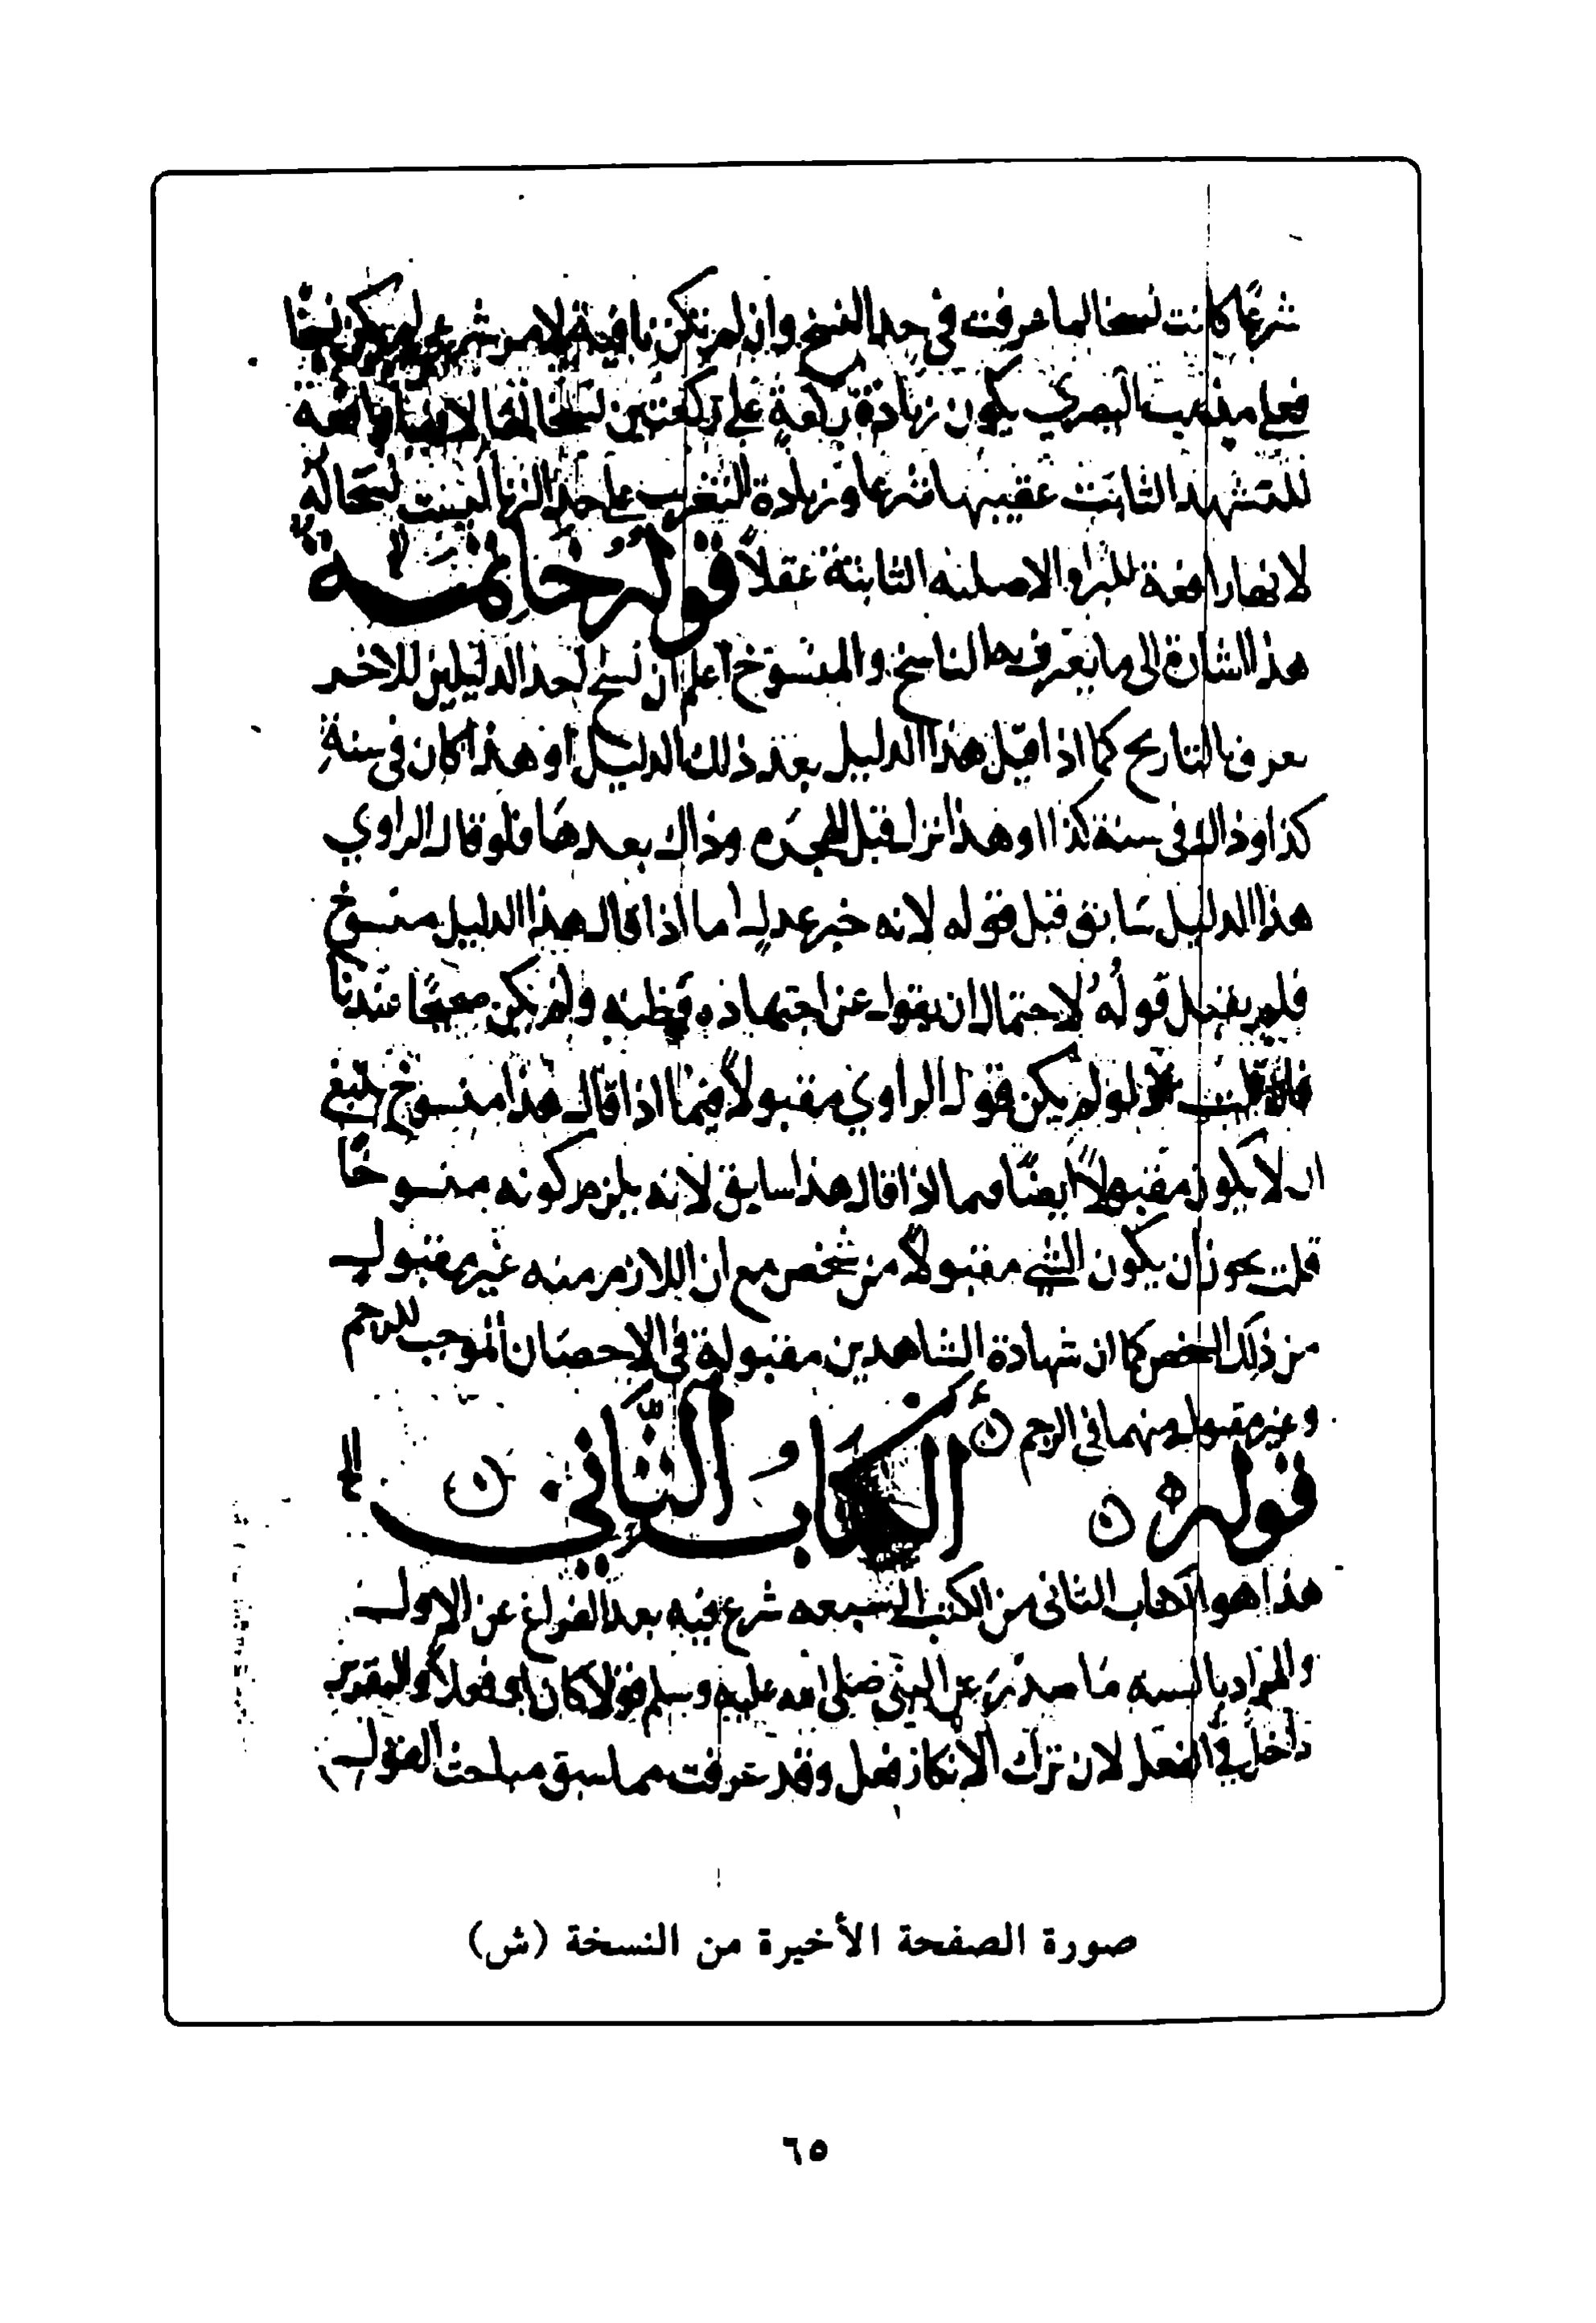 شرعًا كانت نسخا لما عرفت في حد النسخ وان لم تكن نافية لامر شرعي لم يكن نسخًا
فعلى مذهب البصري يكون زيادة ركعة على ركعتين نسخا لانها رافعة
للتشهد الثابت عقيبها شرعا وزيادة التغريب على حد الزنا ليست نسخا له
لانها رافعة للبراة الاصلية الثابتة عقلاً قوله خاتمة
هذا اشارة الى ما يعرف به الناسخ والمنسوخ اعلم ان نسخ احد الدليلين للاخر
يعرف بالتاريخ كما اذا قيل هذا الدليل بعد ذلك الدليل او هذا كان في سنة
كذا وذاك في سنة كذا او هذا نزل قبل الهجرة وذاك بعدها فلو قال الراوي
هذا الدليل سابق قبل قوله لانه خبر عدل اما اذا قال هذا الدليل منسوخ
فلم يقبل قوله لاحتمال ان يقول عن اجتهاده وظنه ولم يكن صحيحًا عندنا
فان قلت لو لم يكن قول الراوي مقبولاً فيما اذا قال هذا منسوخ ينبغي
ان لا يكون مقبولاً ايضًا فيما اذا قال هذا سابق لانه يلزم كونه منسوخًا
قلت يجوز ان يكون الشي مقبولاً من شخص مع ان اللازم منه غير مقبول
من ذلك الشخص كما ان شهادة الشاهدين مقبولة في الاحصان الموجب للرجم
وغير مقبول منهما في الرجم
قوله الكتاب الثاني الى
هذا هو الكتاب الثاني من الكتب السبعه شرع فيه بعد الفراغ عن الاول
والمراد بالسنه ما صدر عن النبي صلى الله عليه وسلم قولا كان او فعلا والتقرير
داخل في الفعل لان ترك الانكار فعل وقد عرفت مما سبق مباحث القول
صورة الصفحة الأخيرة من النسخة (ش)
٦٥